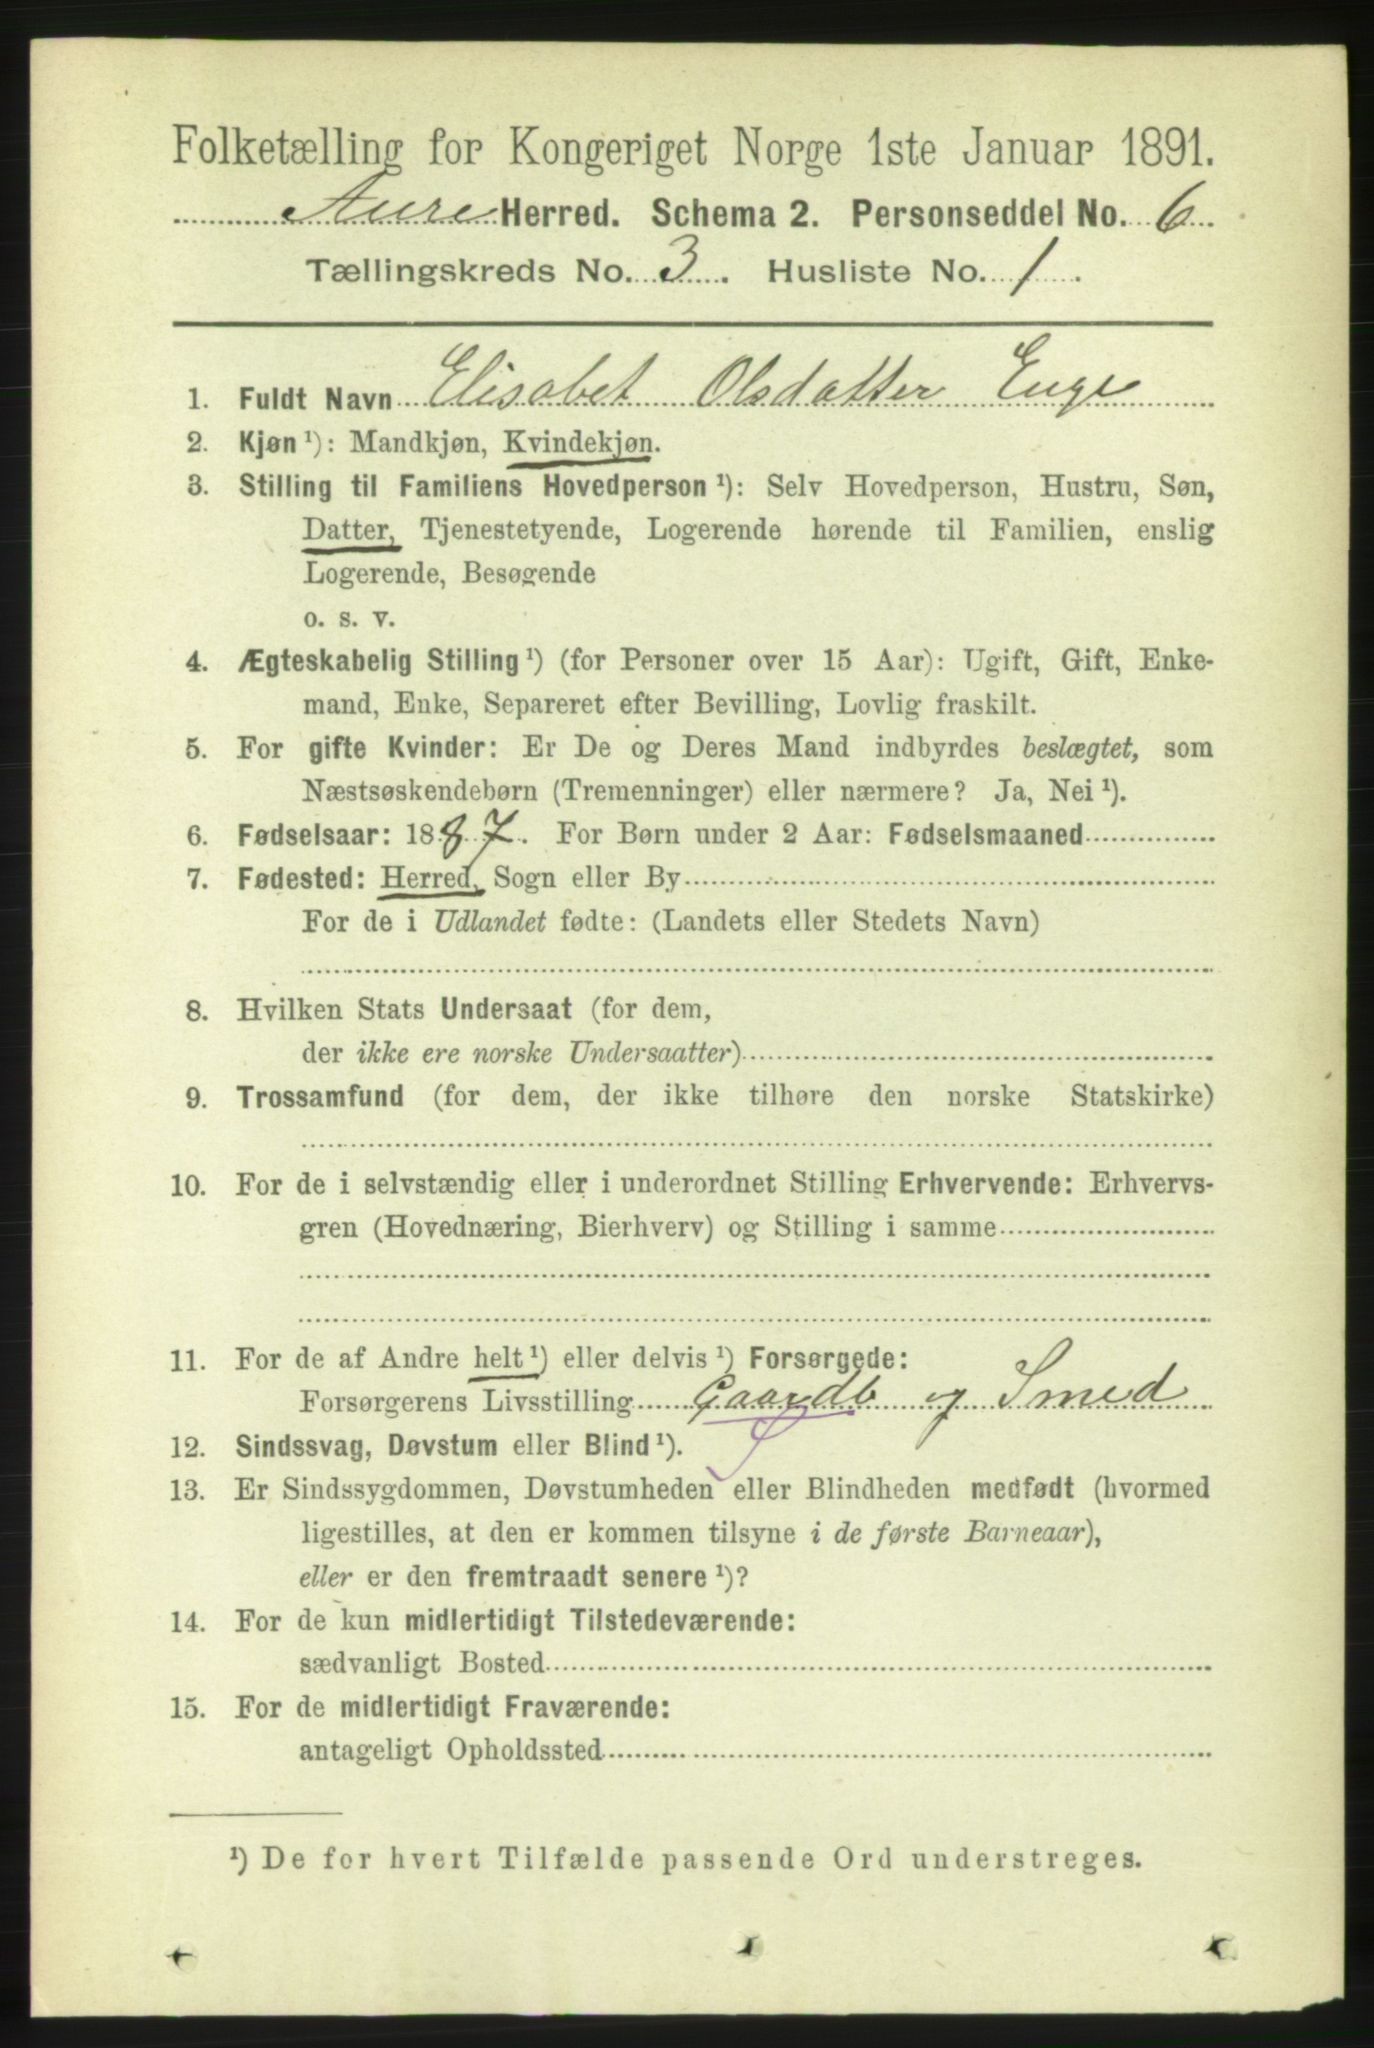 Folketælling for Kongeriget Norge 1ste Januar 1891.
Aure Herred. Schema 2. Personseddel No. 6
Tællingskreds No. 3. Husliste No. 1.
1. Fuldt Navn Elisabet Olsdatter Enge
2. Kjøn ¹): Mandkjøn, Kvindekjøn.
3. Stilling til Familiens Hovedperson ¹): Selv Hovedperson, Hustru, Søn,
Datter, Tjenestetyende, Logerende hørende til Familien, enslig
Logerende, Besøgende
o. s. v.
4. Ægteskabelig Stilling ¹) (for Personer over 15 Aar): Ugift, Gift, Enke-
mand, Enke, Separeret efter Bevilling, Lovlig fraskilt.
5. For gifte Kvinder: Er De og Deres Mand indbyrdes beslægtet, som
Næstsøskendebørn (Tremenninger) eller nærmere? Ja, Nei ¹).
6. Fødselsaar: 1887. For Børn under 2 Aar: Fødselsmaaned
7. Fødested: Herred, Sogn eller By
For de i Udlandet fødte: (Landets eller Stedets Navn)
8. Hvilken Stats Undersaat (for dem,
der ikke ere norske Undersaatter)
9. Trossamfund (for dem, der ikke tilhøre den norske Statskirke)
10. For de i selvstændig eller i underordnet Stilling Erhvervende: Erhvervs-
gren (Hovednæring, Bierhverv) og Stilling i samme
11. For de af Andre helt ¹) eller delvis ¹) Forsørgede:
Forsørgerens Livsstilling Gaardb og Smed
12. Sindssvag, Døvstum eller Blind ¹).
13. Er Sindssygdommen, Døvstumheden eller Blindheden medfødt (hvormed
ligestilles, at den er kommen tilsyne i de første Barneaar),
eller er den fremtraadt senere ¹)?
14. For de kun midlertidigt Tilstedeværende:
sædvanligt Bosted
15. For de midlertidigt Fraværende:
antageligt Opholdssted
¹) De for hvert Tilfælde passende Ord understreges.